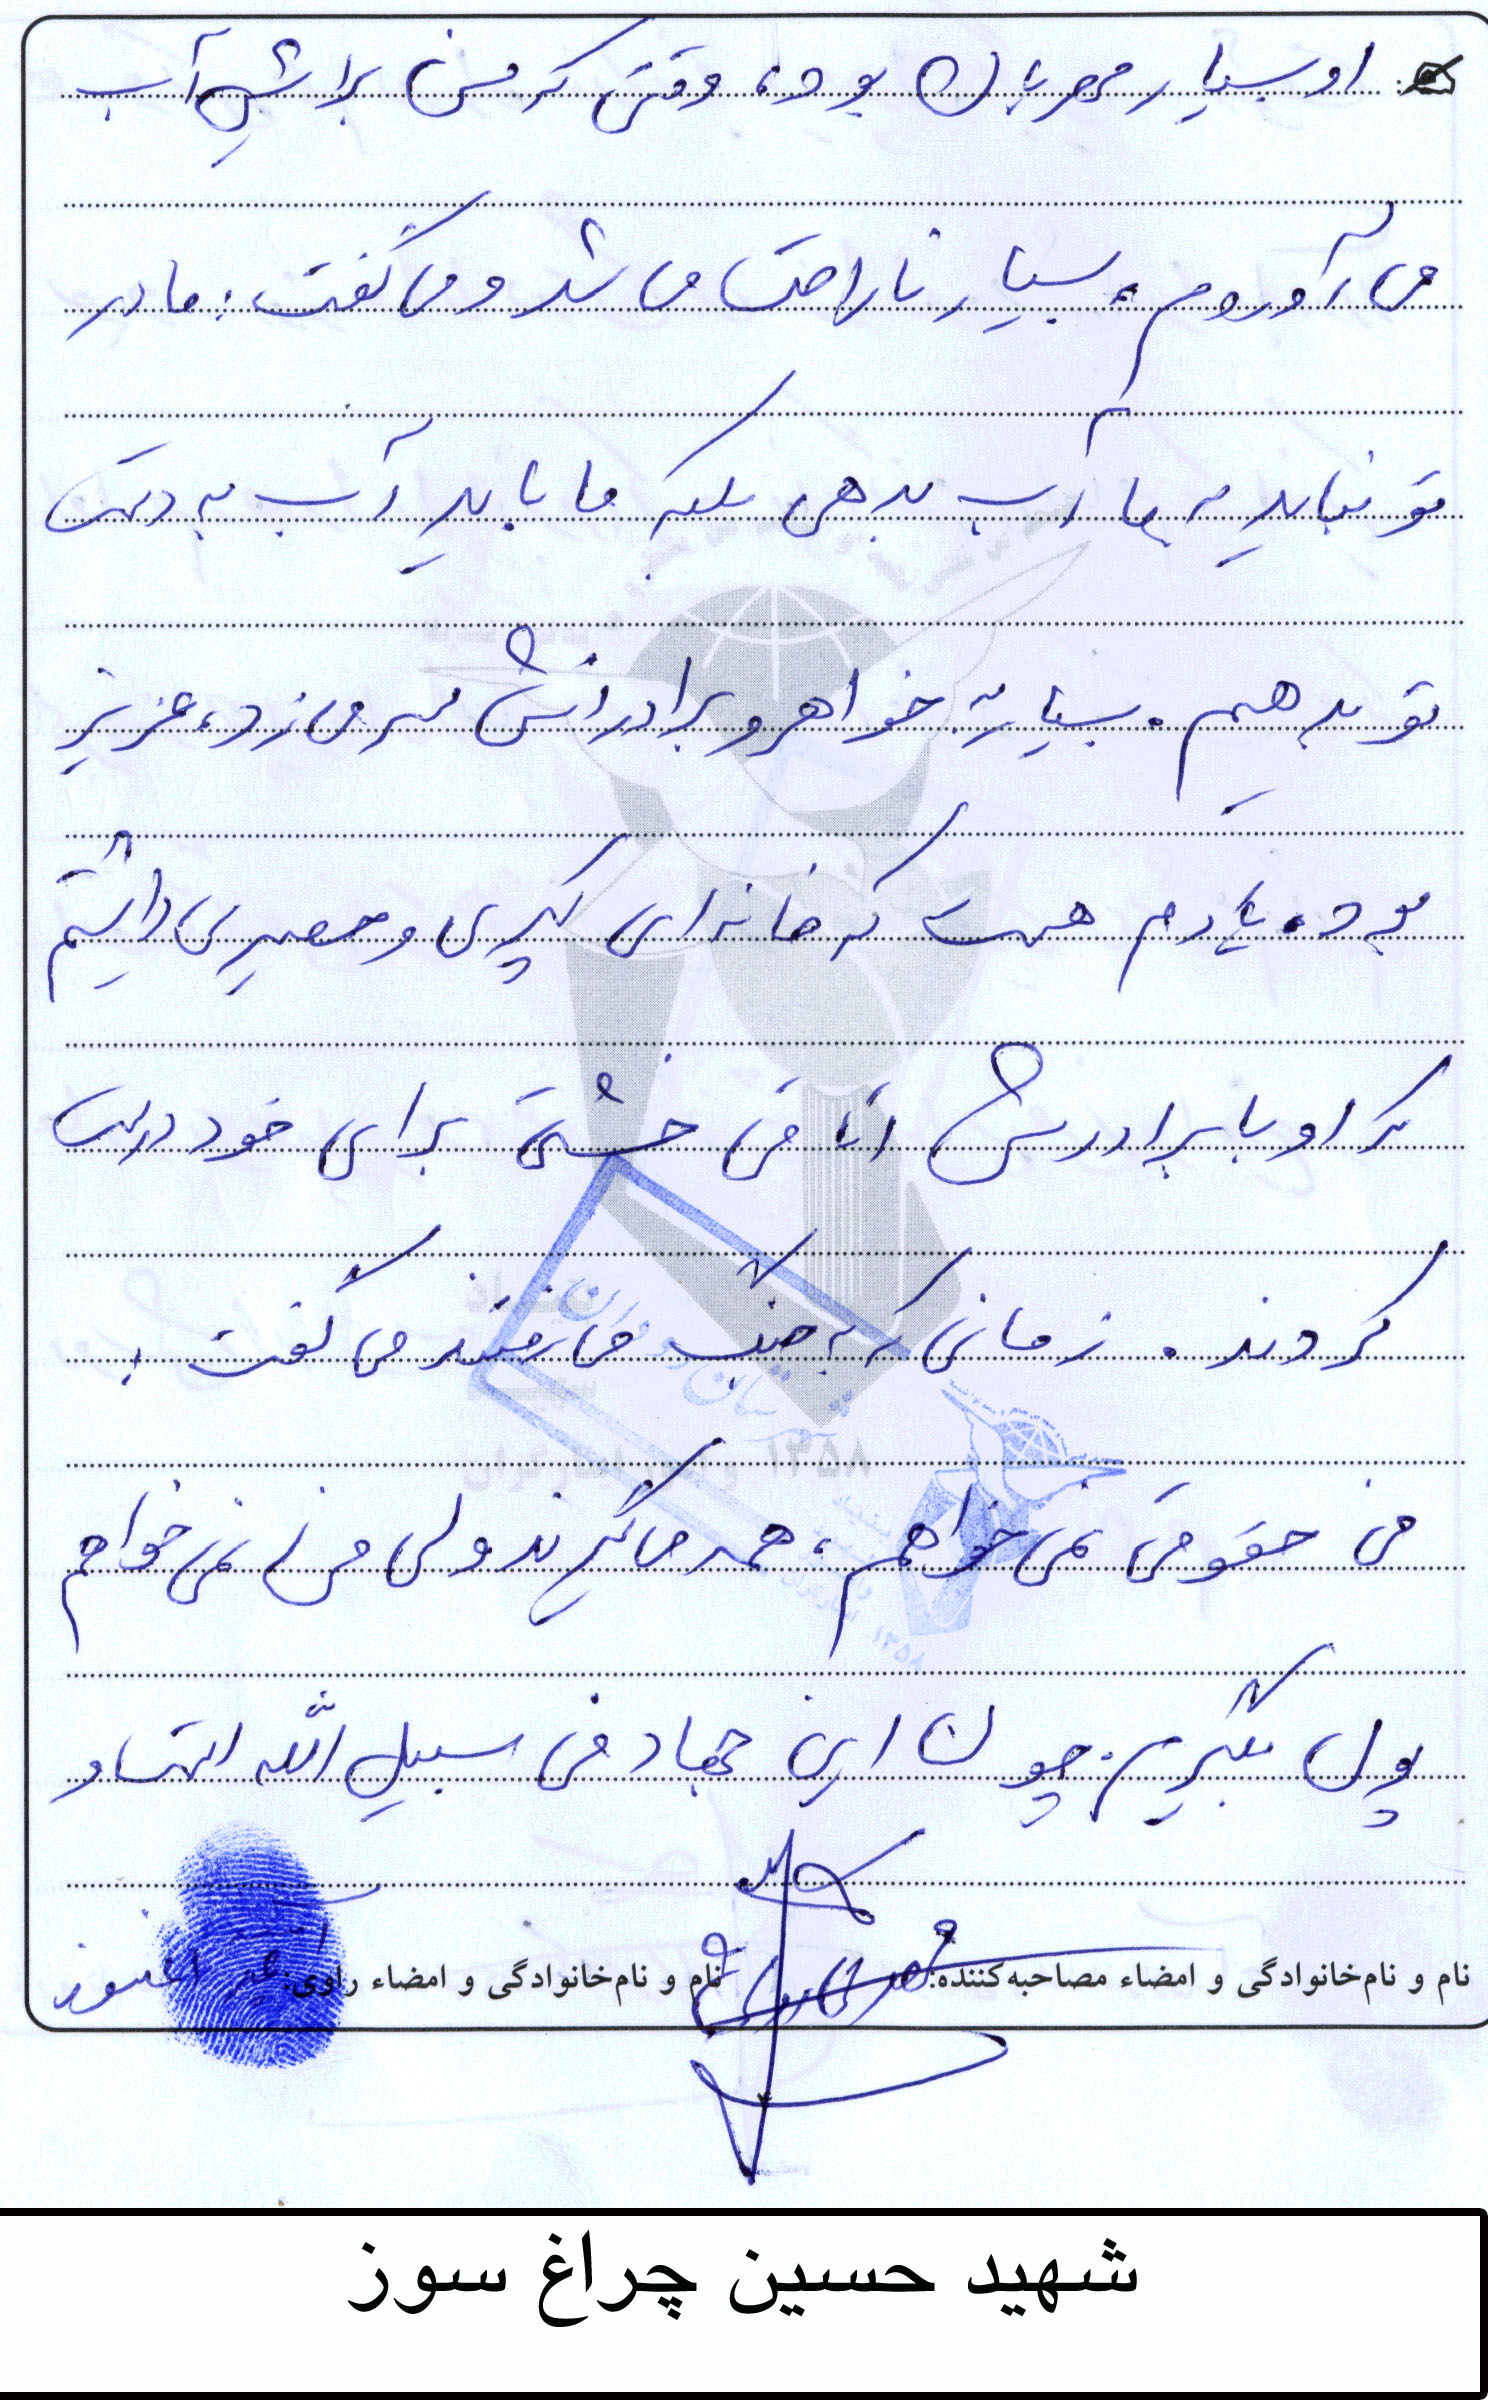 او بسیار مهربان بود، وقتی که من براش آب
می آوردم، بسیار ناراحت می شد و می گفت: مادر
تو نباید به ما آب بدهی بلکه ما باید آب به دست
تو بدهیم. بسیار به خواهر و برادرانش سر می زد، عزیز
بود. یادم هست که خانه ای کپری و حصیری داشتیم
که او با برادرش اتاقی خشتی برای خود درست
کردند. زمانی که به جنگ می رفتند می گفت:
من حقوقی نمی خواهم، همه می گیرند ولی من نمی خواهم
پول بگیرم. چون این جهاد فی سبیل الله است و
۱۳۵۸
نام و نام‌خانوادگی و امضاء مصاحبه‌کننده:
نام و نام‌خانوادگی و امضاء راوی:
شهید حسین چراغ سوز